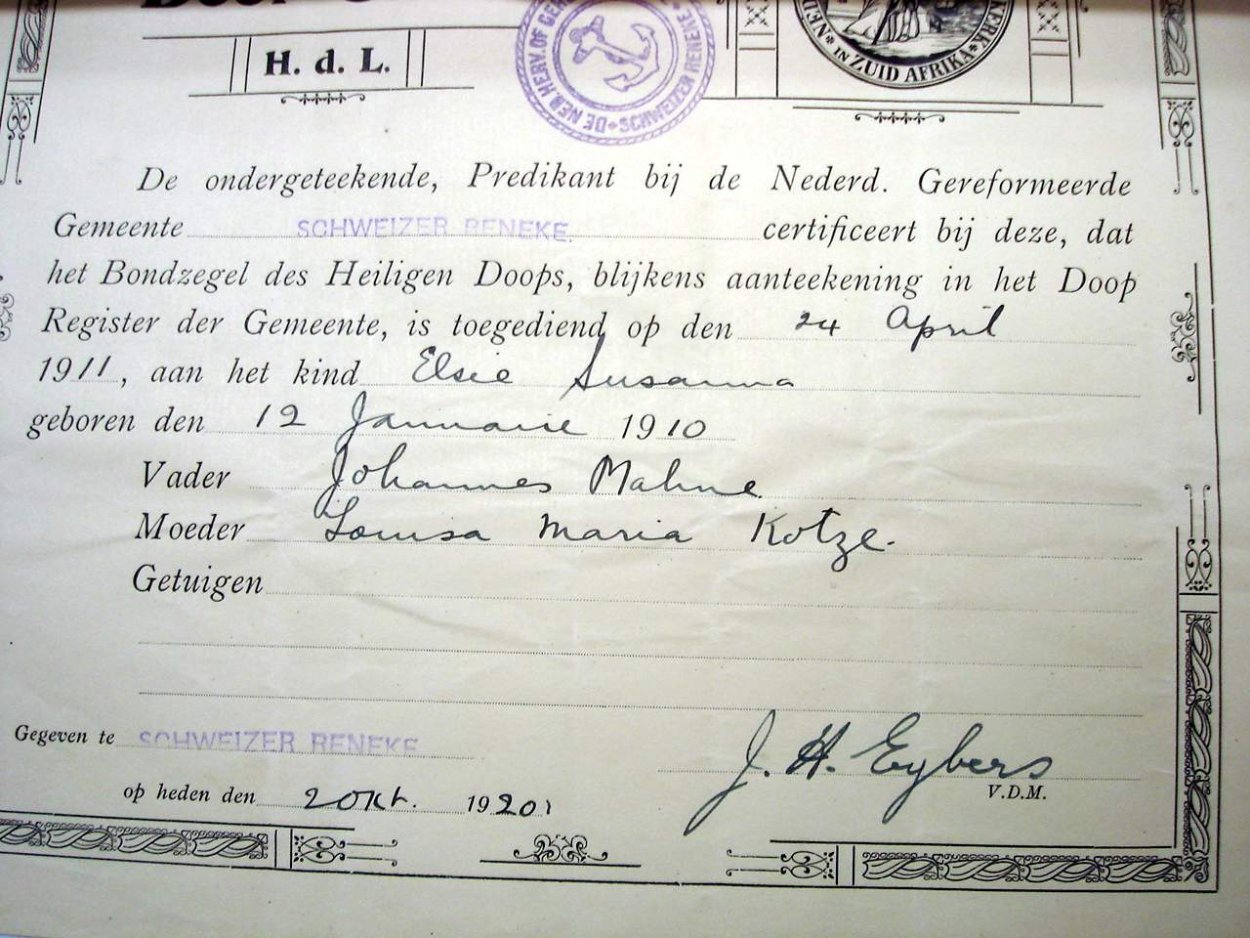 H. d. L.
DE NED. HERV. OF GE
SCHWEIZER RENEKE
NED
KERK
IN ZUID AFRIKA
De ondergeteekende, Predikant bij de Nederd. Gereformeerde
Gemeente SCHWEIZER RENEKE. certificeert bij deze, dat
het Bondzegel des Heiligen Doops, blijkens aanteekening in het Doop
Register der Gemeente, is toegediend op den 24 April
1911, aan het kind Elsie Susanna
geboren den 12 Januarie 1910
Vader Johannes Mahne
Moeder Louisa Maria Kotze.
Getuigen
Gegeven te SCHWEIZER RENEKE
J. H. Eybers
V.D.M.
op heden den 2 Okt. 1920